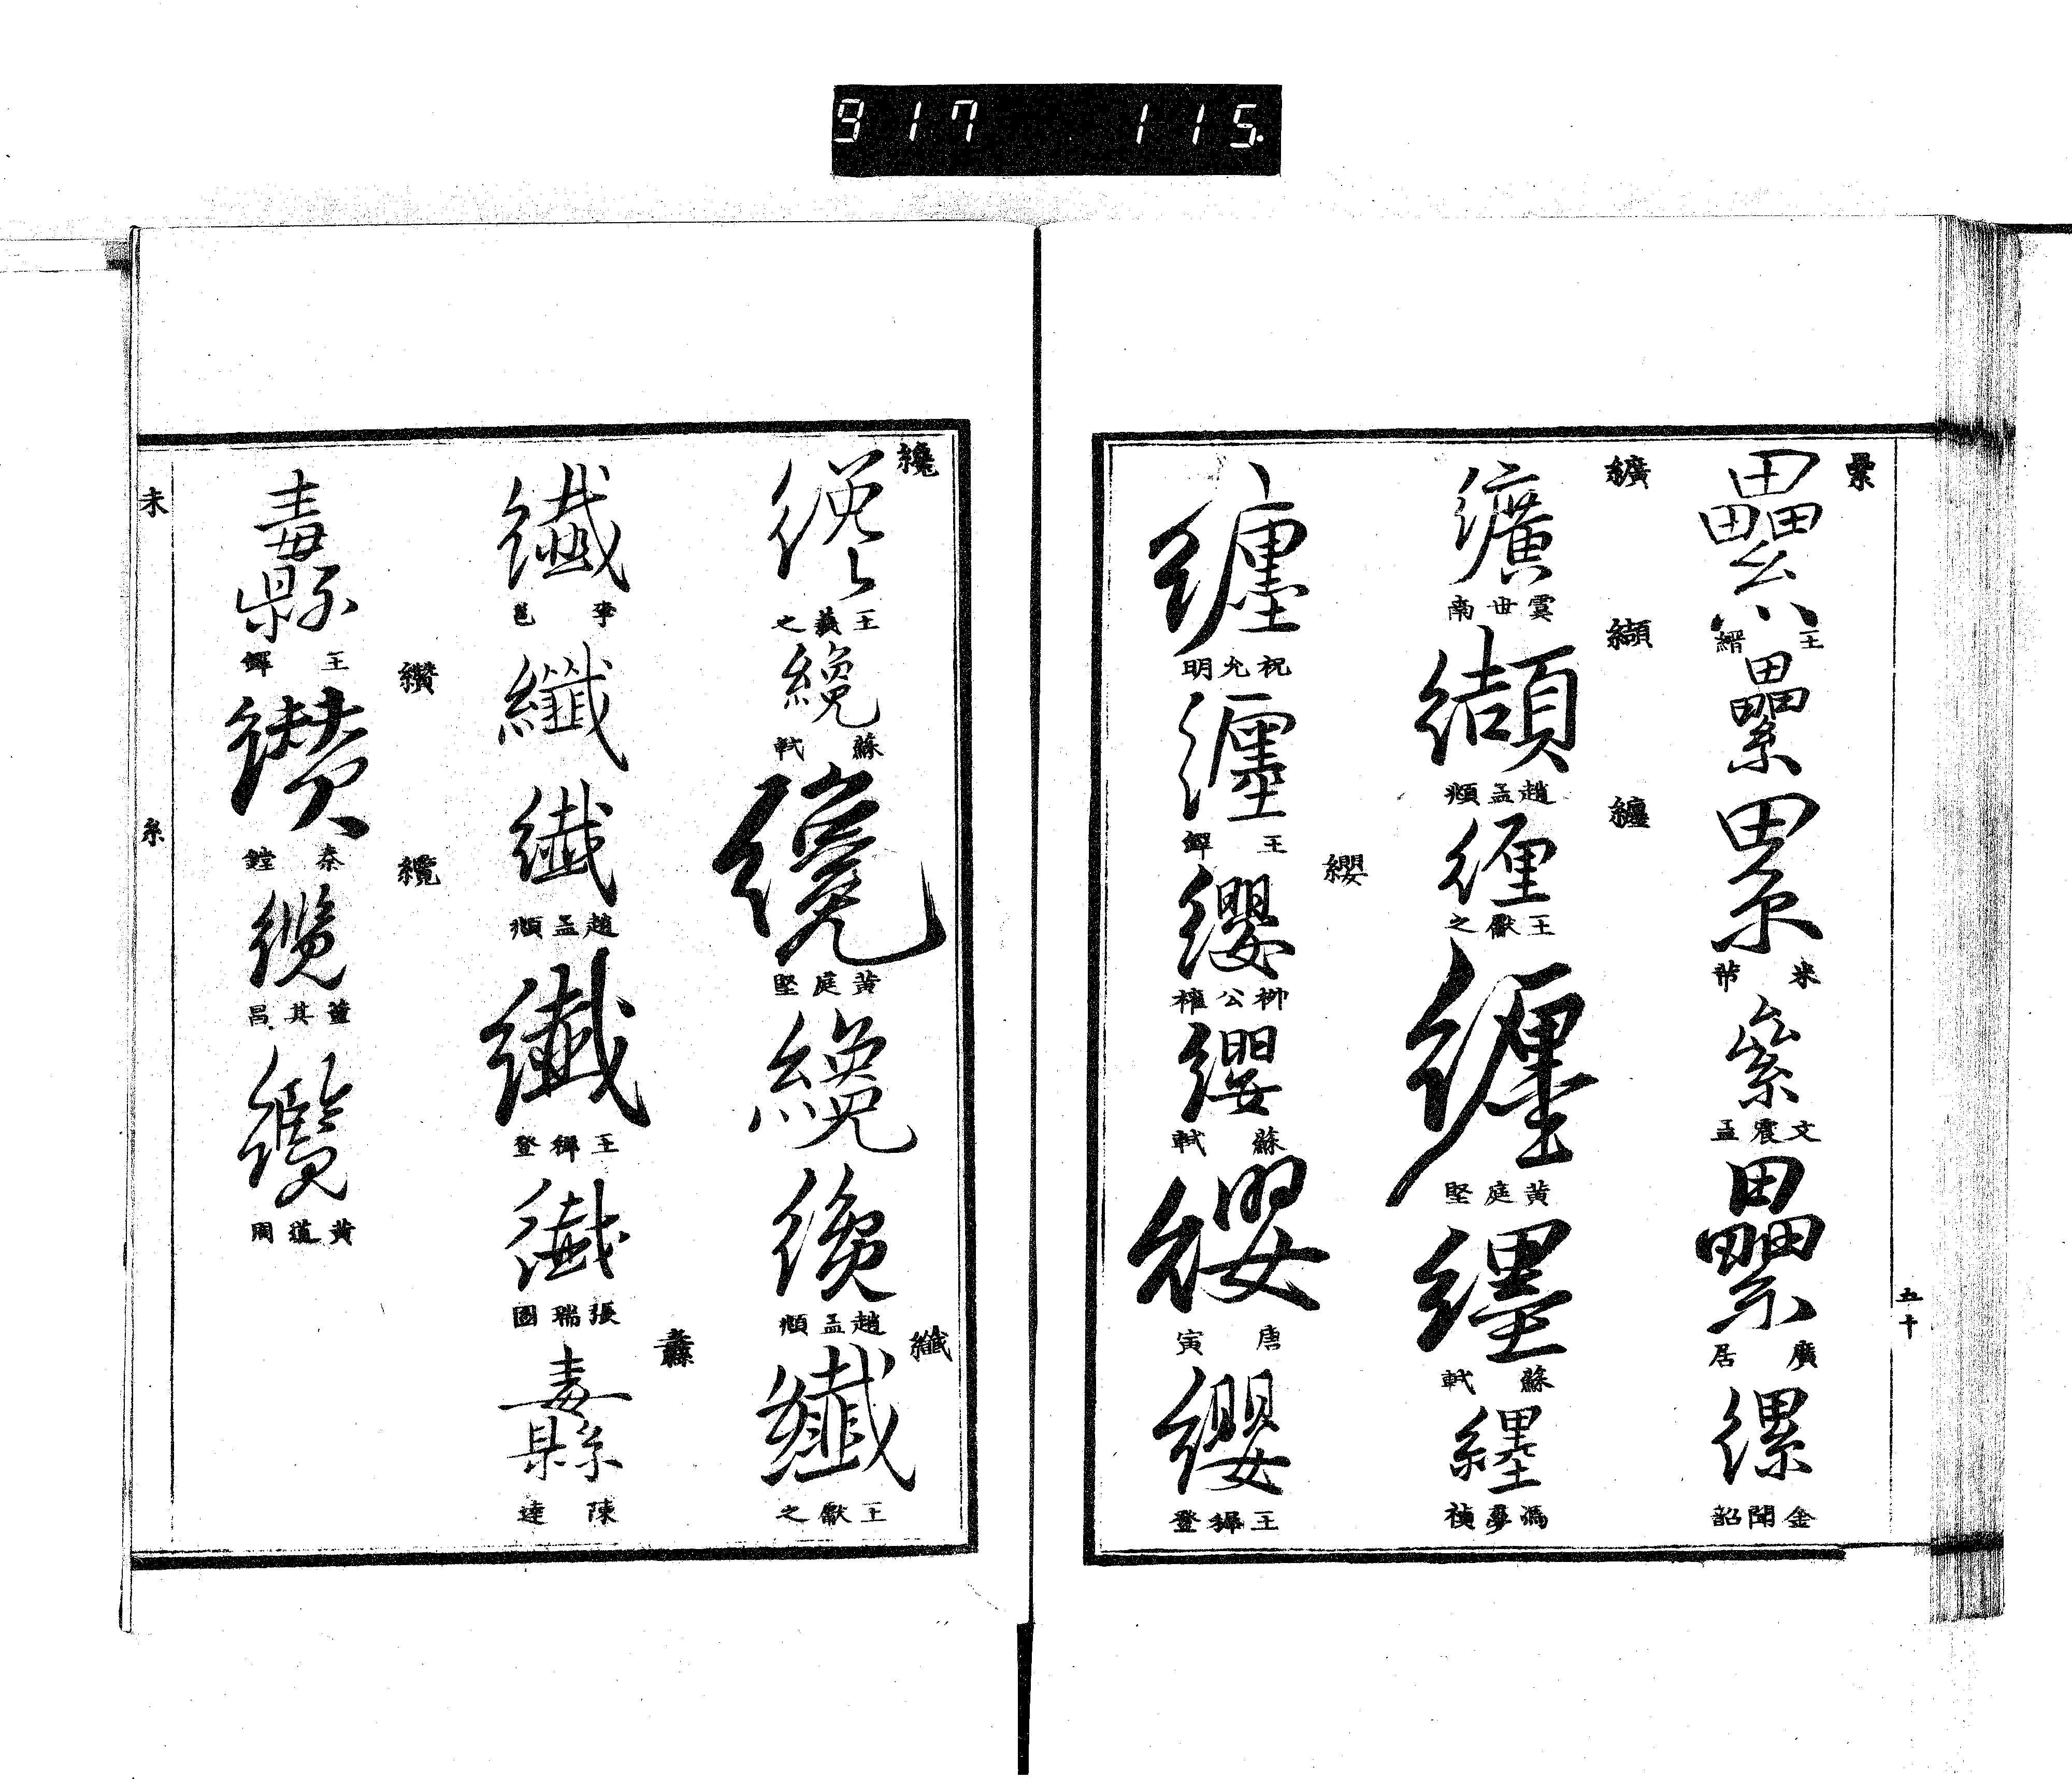 917 115
纍
纍
王縉
纍
累
米芾
絫
文震孟
纍
廣居
縲
金聞韶
五十
纊
纊
虞世南
纈
纈
趙孟頫
纏
纏
王獻之
纏
黃庭堅
纏
蘇軾
纏
馮夢禎
纏
祝允明
纏
王鐸
纓
纓
柳公權
纓
蘇軾
纓
唐寅
纓
王穉登
纔
纔
王羲之
纔
蘇軾
纔
黃庭堅
纔
纔
趙孟頫
纖
纖
王獻之
纖
李邕
纖
纖
趙孟頫
纖
王穉登
纖
張瑞圖
纛
纛
陳達
纛
王鐸
纘
纘
秦鏜
纜
纜
董其昌
纜
黃道周
未
糸